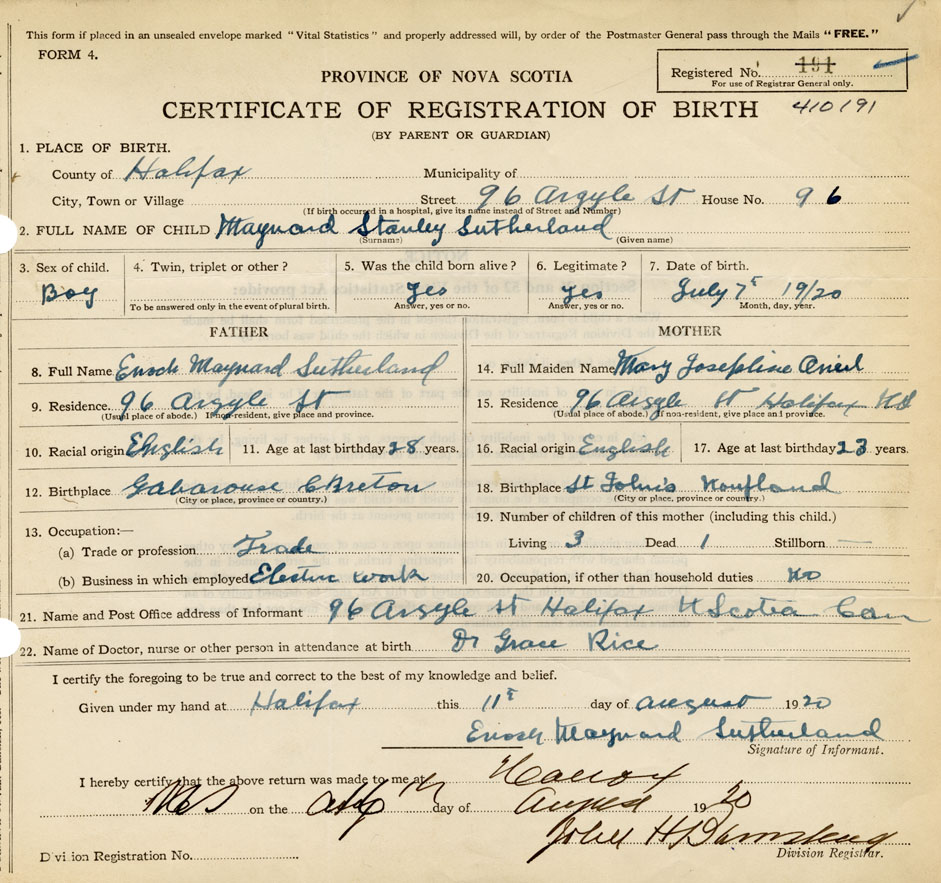 This form if placed in an unsealed envelope marked "Vital Statistics" and properly addressed will, by order of the Postmaster General pass through the Mails "FREE."
FORM 4.
Registered No. 191
For use of Registrar General only.
PROVINCE OF NOVA SCOTIA
CERTIFICATE OF REGISTRATION OF BIRTH 410191
(BY PARENT OR GUARDIAN)
1. PLACE OF BIRTH.
County of Halifax Municipality of
City, Town or Village Street 96 Argyle St House No. 96
(If birth occurred in a hospital, give its name instead of Street and Number)
2. FULL NAME OF CHILD Maynard Stanley Sutherland
(Surname) (Given name)
3. Sex of child. 4. Twin, triplet or other? 5. Was the child born alive? 6. Legitimate? 7. Date of birth.
Boy yes yes July 7 19/20
To be answered only in the event of plural birth. Answer, yes or no. Answer, yes or no. Month, day, year.
FATHER MOTHER
8. Full Name Enoch Maynard Sutherland 14. Full Maiden Name Mary Josephine Oneil
9. Residence. 96 Argyle St 15. Residence 96 Argyle St Halifax NS
(Usual place of abode.) If non-resident, give place and province. (Usual place of abode.) If non-resident, give place and province.
10. Racial origin English 11. Age at last birthday 28 years. 16. Racial origin English 17. Age at last birthday 23 years.
12. Birthplace Gabarouse CBreton 18. Birthplace St John's Noufland
(City or place, province or country.) (City or place, province or country.)
19. Number of children of this mother (including this child.)
13. Occupation:—
(a) Trade or profession Trade Living 3 Dead 1 Stillborn —
(b) Business in which employed Electric work 20. Occupation, if other than household duties no
21. Name and Post Office address of Informant 96 Argyle st Halifax N Scotia Can
22. Name of Doctor, nurse or other person in attendance at birth Dr Grace Rice
I certify the foregoing to be true and correct to the best of my knowledge and belief.
Given under my hand at Halifax this 11 day of august 1920
Enoch Maynard Sutherland
Signature of Informant.
I hereby certify that the above return was made to me at
on the day of August 1920
John H
Division Registration No. Division Registrar.